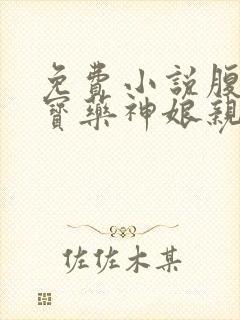 免費小說腹
寶藥神娘親
佐佐木某